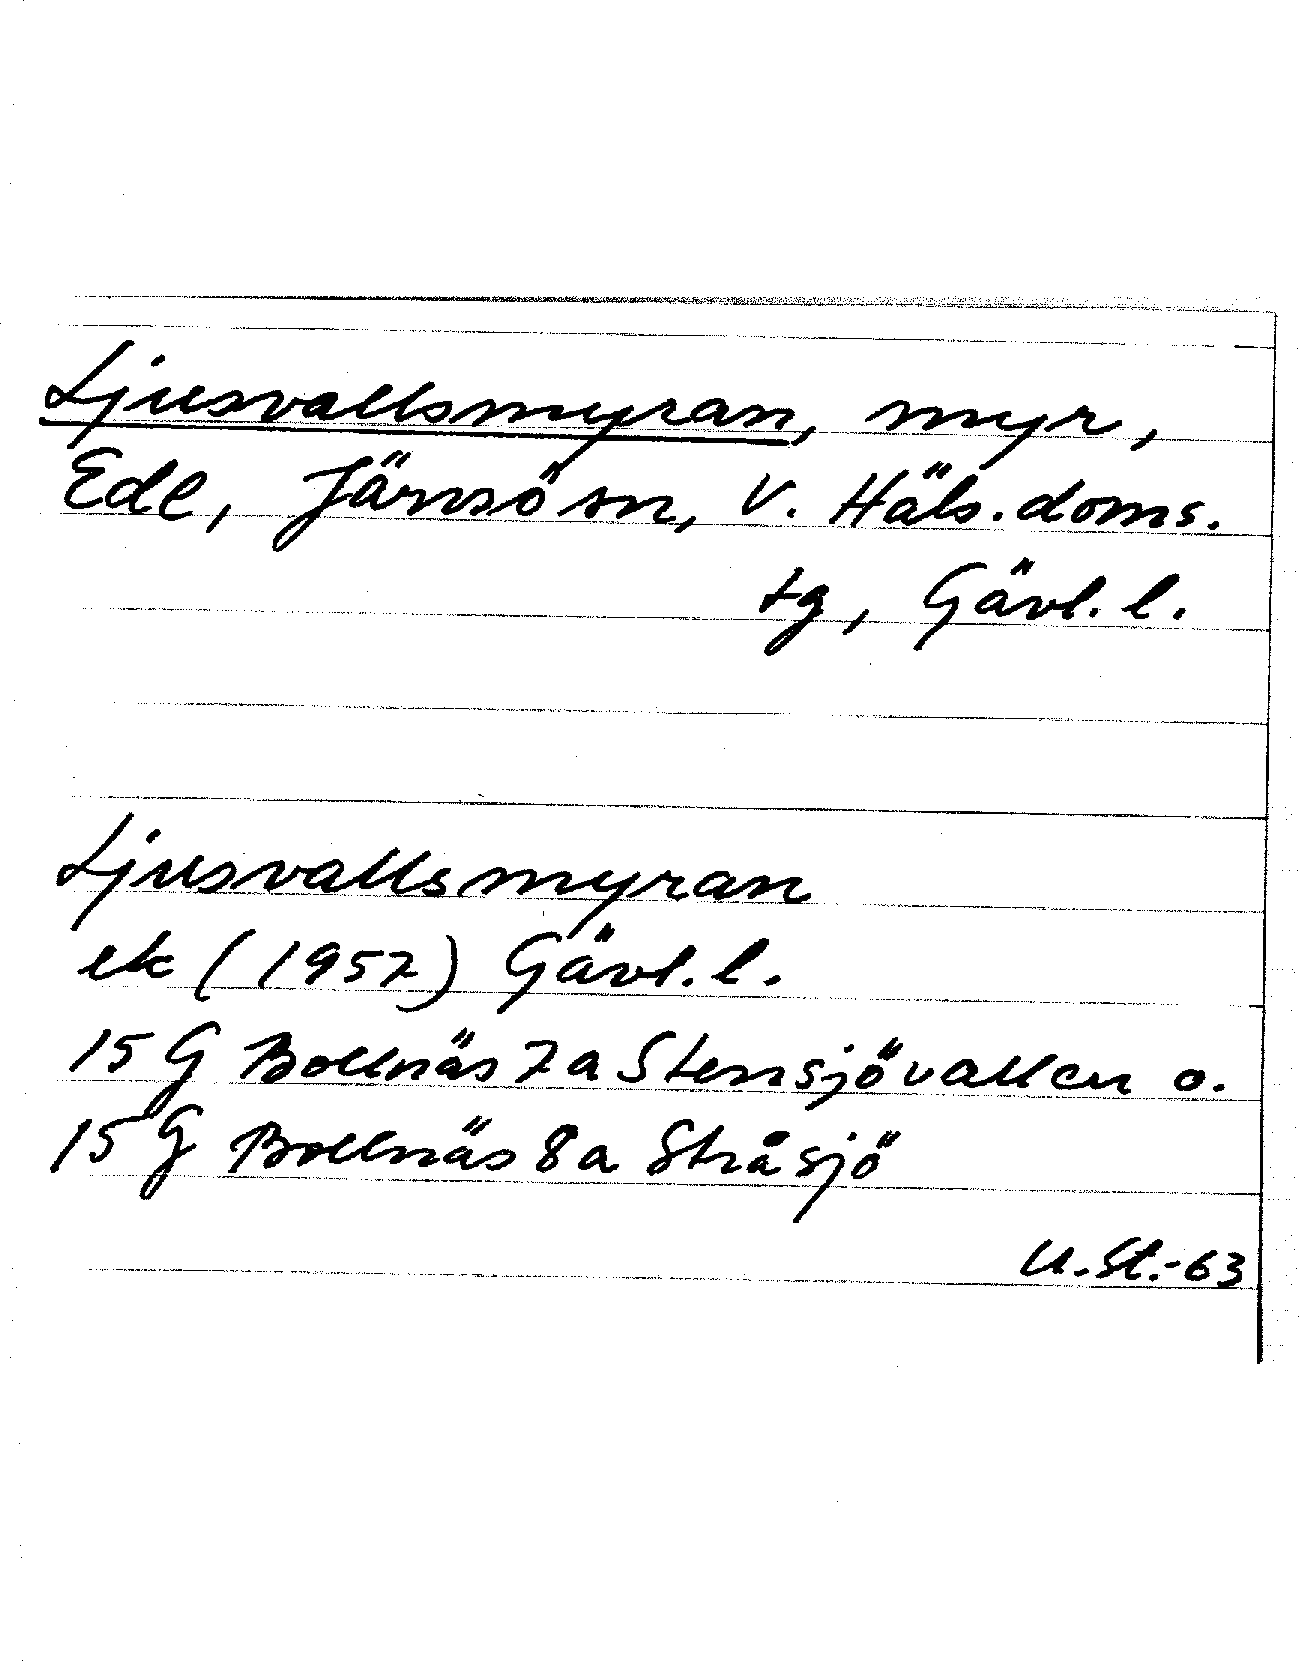 Ljusvallsmyran, myr,
Ede, Järvsö sn, V. Häls. doms.
tg, Gävl. l.
Ljusvallsmyran
ek (1957) Gävl. l.
15 G Bollnäs 7 a Stensjövallen o.
15 G Bollnäs 8 a Stråsjö
U. St. -63